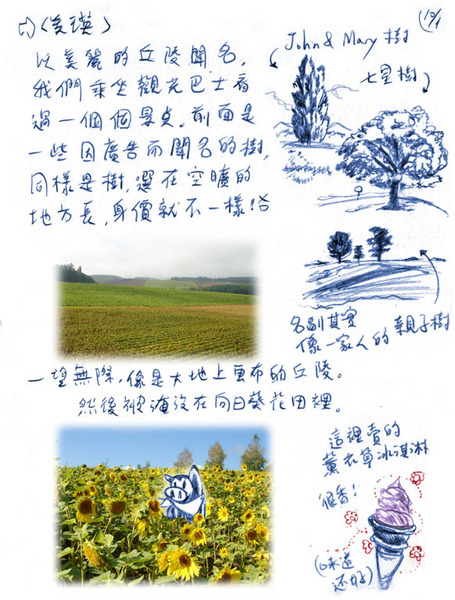 <美瑛>
以美麗的丘陵聞名,
我們乘坐觀光巴士看
過一個個景点。前面是
一些因廣告而聞名的樹,
同樣是樹,選在空曠的
地方長,身價就不一樣咯
John & Mary 樹
七星樹
名副其实
像一家人的 親子樹
一望無際,像是大地上電布的丘陵。
然後被淹沒在向日葵花田裡。
這裡賣的
薰衣草冰淇淋
很香!
(味道
还好)